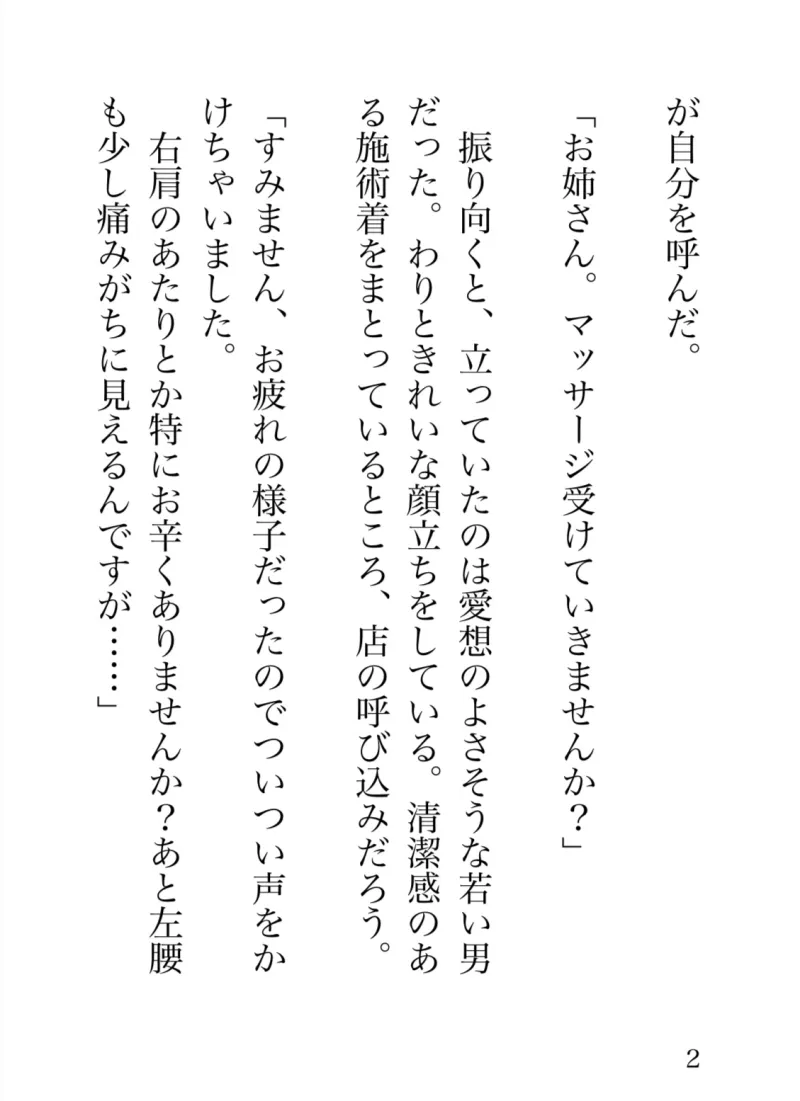 が自分を呼んだ。
「お姉さん。マッサージ受けていきませんか？」
振り向くと、立っていたのは愛想のよさそうな若い男
だった。わりときれいな顔立ちをしている。清潔感のあ
る施術着をまとっているところ、店の呼び込みだろう。
「すみません、お疲れの様子だったのでついつい声をか
けちゃいました。
右肩のあたりとか特にお辛くありませんか？あと左腰
も少し痛みがちに見えるんですが……」
2